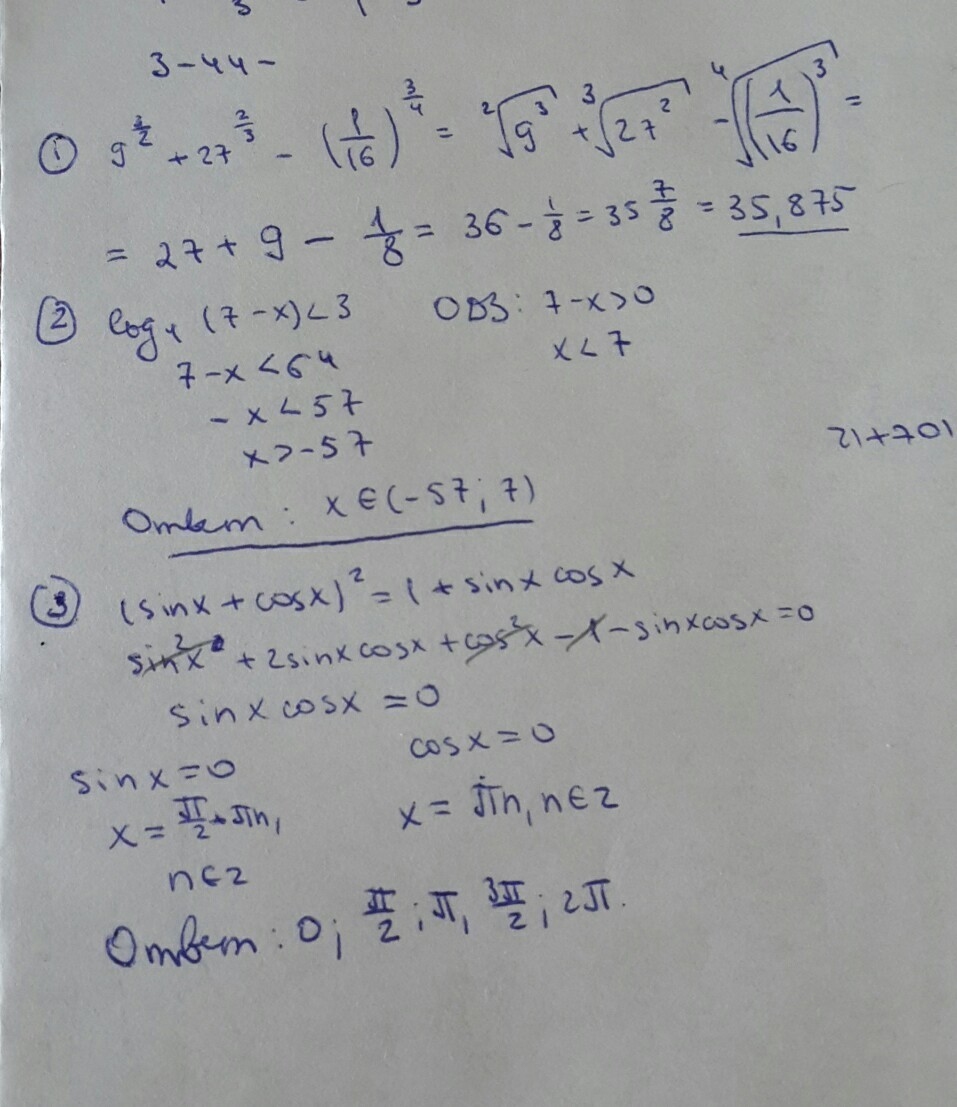 3-44-
① 9^{3/2} + 27^{2/3} - (1/16)^{3/4} = ²√9³ + ³√27² - ⁴√(1/16)³ =
= 27 + 9 - 1/8 = 36 - 1/8 = 35 7/8 = 35,875
② log₄ (7-x)<3 ОДЗ: 7-x>0
7-x<64 x<7
-x<57
x>-57
21+701
Ответ: x∈(-57; 7)
③ (sinx + cosx)² = 1 + sinx cosx
sin²x + 2sinx cosx + cos²x - 1 - sinxcosx = 0
sinx cosx = 0
sinx=0 cosx=0
x = π/2 + πn, x = πn, n∈z
n∈z
Ответ: 0; π/2; π, 3π/2; 2π.